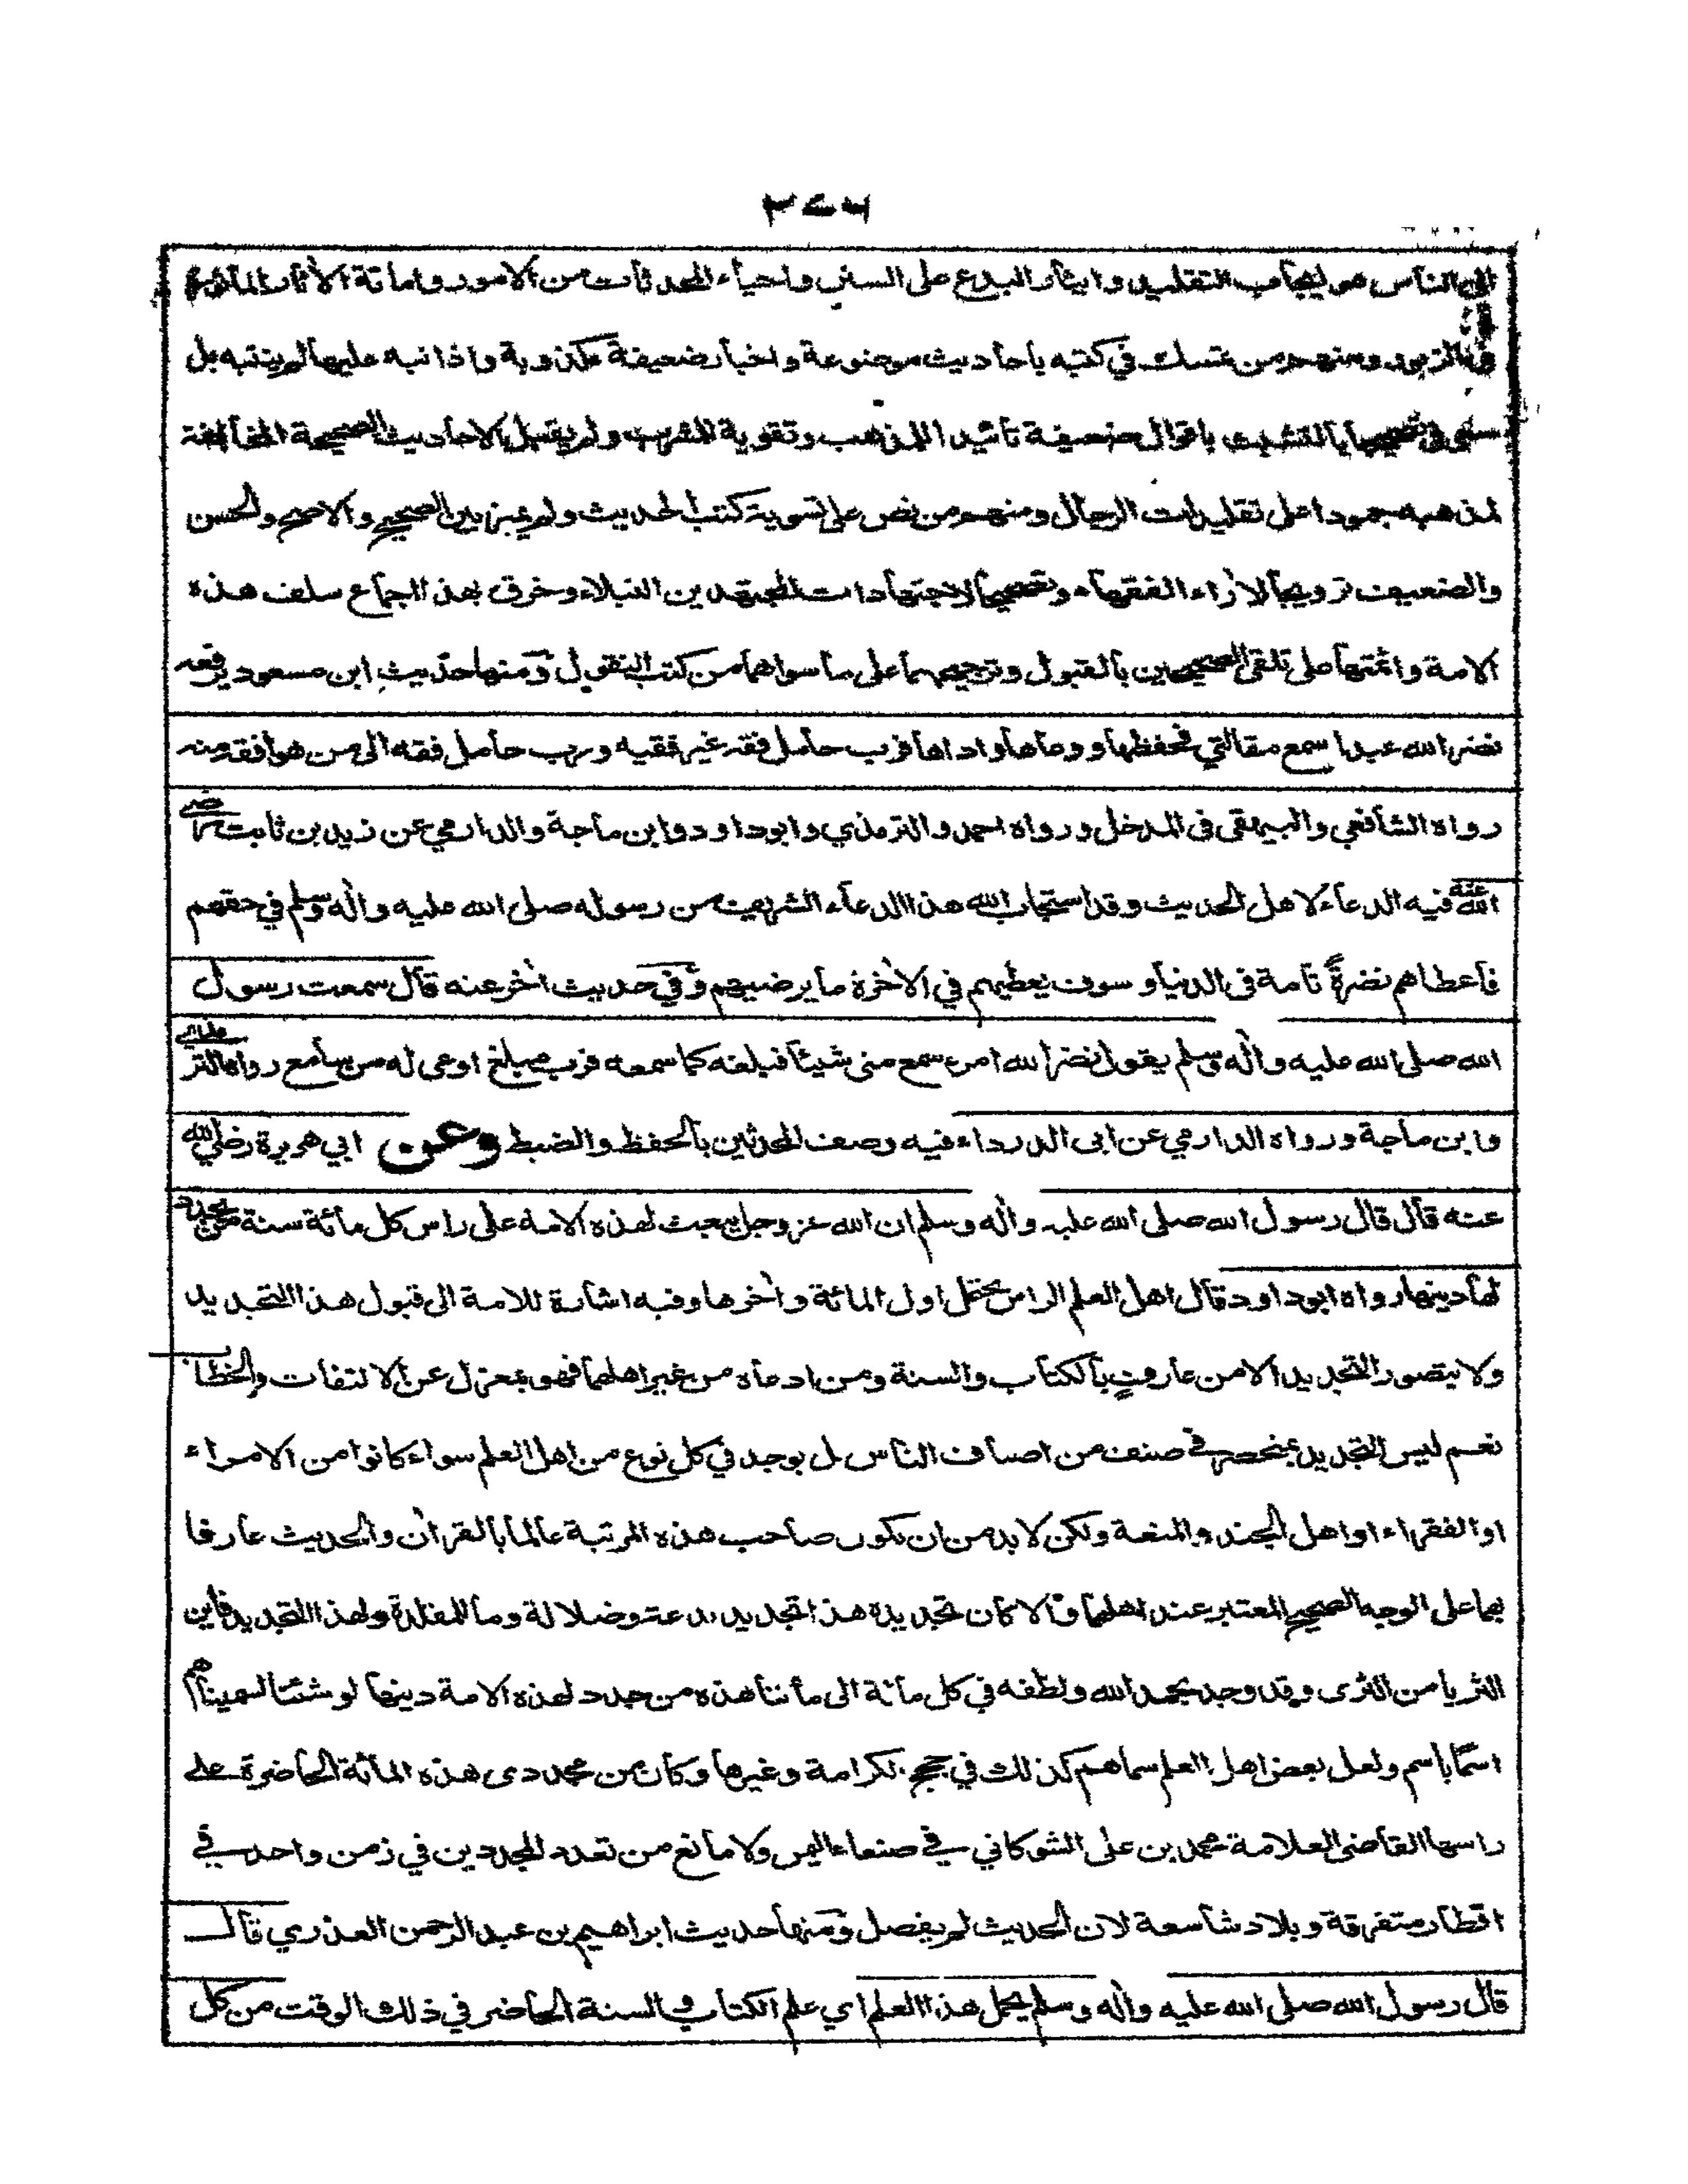 ٢٧٦
الى الناس من ايجاب التقليد وايثار البدع على السنن واحياء المحدثات من الامور واماتة الآثار المأثورة
في الزبور ومنهم من تمسك في كتبه باحاديث موضوعة واخبار ضعيفة مكذوبة واذا نبه عليها لم ينتبه بل
سعى في تصحيحها بالتشبث باقوال ضعيفة تائيد اللمذهب وتقوية للمشرب ولم يقبل الاحاديث الصحيحة المخالفة
لمذهبه جمودا على تقليدات الرجال ومنهم من نص على تسوية كتب الحديث ولم يميز بين الصحيح والاصح والحسن
والضعيف ترويجا لآراء الفقهاء وتصحيحا لاجتهادات المجتهدين النبلاء وخرق بهذا اجماع سلف هذه
الامة وائمتها على تلقى الصحيحين بالقبول وترجيحهما على ما سواهما من كتب النقول ومنها حديث ابن مسعود يرفعه
نضر الله عبدا سمع مقالتي فحفظها ووعاها واداها فرب حامل فقه غير فقيه ورب حامل فقه الى من هو افقه منه
رواه الشافعي والبيهقى فى المدخل ورواه احمد والترمذي وابوداود وابن ماجة والدارمي عن زيد بن ثابت رضي
الله عنه فيه الدعاء لاهل الحديث وقد استجاب الله هذا الدعاء الشريف من رسوله صلى الله عليه وآله وسلم في حقهم
فاعطاهم نضرة تامة فى الدنيا وسوف يعطيهم في الآخرة ما يرضيهم وفي حديث آخر عنه قال سمعت رسول
الله صلى الله عليه وآله وسلم يقول نضر الله امرء سمع منى شيئا فبلغه كما سمعه فرب مبلغ اوعى له من سامع رواه الترمذي
وابن ماجة ورواه الدارمي عن ابى الدرداء فيه وصف المحدثين بالحفظ والضبط وعن ابي هريرة رضي الله
عنه قال قال رسول الله صلى الله عليه وآله وسلم ان الله عز وجل يبعث لهذه الامة على راس كل مائة سنة من يجدد
لها دينها رواه ابوداود قال اهل العلم الراس يحتمل اول المائة وآخرها وفيه اشارة للامة الى قبول هذا التجديد
ولا يتصور التجديد الا من عارف بالكتاب والسنة ومن ادعاه من غير اهلهما فهو بمعزل عن الالتفات والخطاب
نعم ليس التجديد بمنحصر في صنف من اصناف الناس بل يوجد في كل نوع من اهل العلم سواء كانوا من الامراء
او الفقراء او اهل الجند والمنعة ولكن لا بد من ان يكون صاحب هذه المرتبة عالما بالقرآن والحديث عارفا
بهما على الوجه الصحيح المعتبر عند اهلهما والا كان تجديده هذا تجديد بدعة وضلالة وما للمقلدة ولهذا التجديد فاين
الثريا من الثرى وقد وجد بحمد الله ولطفه في كل مائة الى مائتنا هذه من جدد لهذه الامة دينها لو شئنا لسميناهم
اسما باسم ولعل بعض اهل العلم سماهم كذلك في حجج الكرامة وغيرها وكان من مجددى هذه المائة الحاضرة على
راسها القاضى العلامة محمد بن على الشوكاني في صنعاء اليمن ولا مانع من تعدد المجددين في زمن واحد في
اقطار متفرقة وبلاد شاسعة لان الحديث لم يفصل ومنها حديث ابراهيم بن عبد الرحمن العذري قال
قال رسول الله صلى الله عليه وآله وسلم يحمل هذا العلم اي علم الكتاب والسنة الحاضر في ذلك الوقت من كل